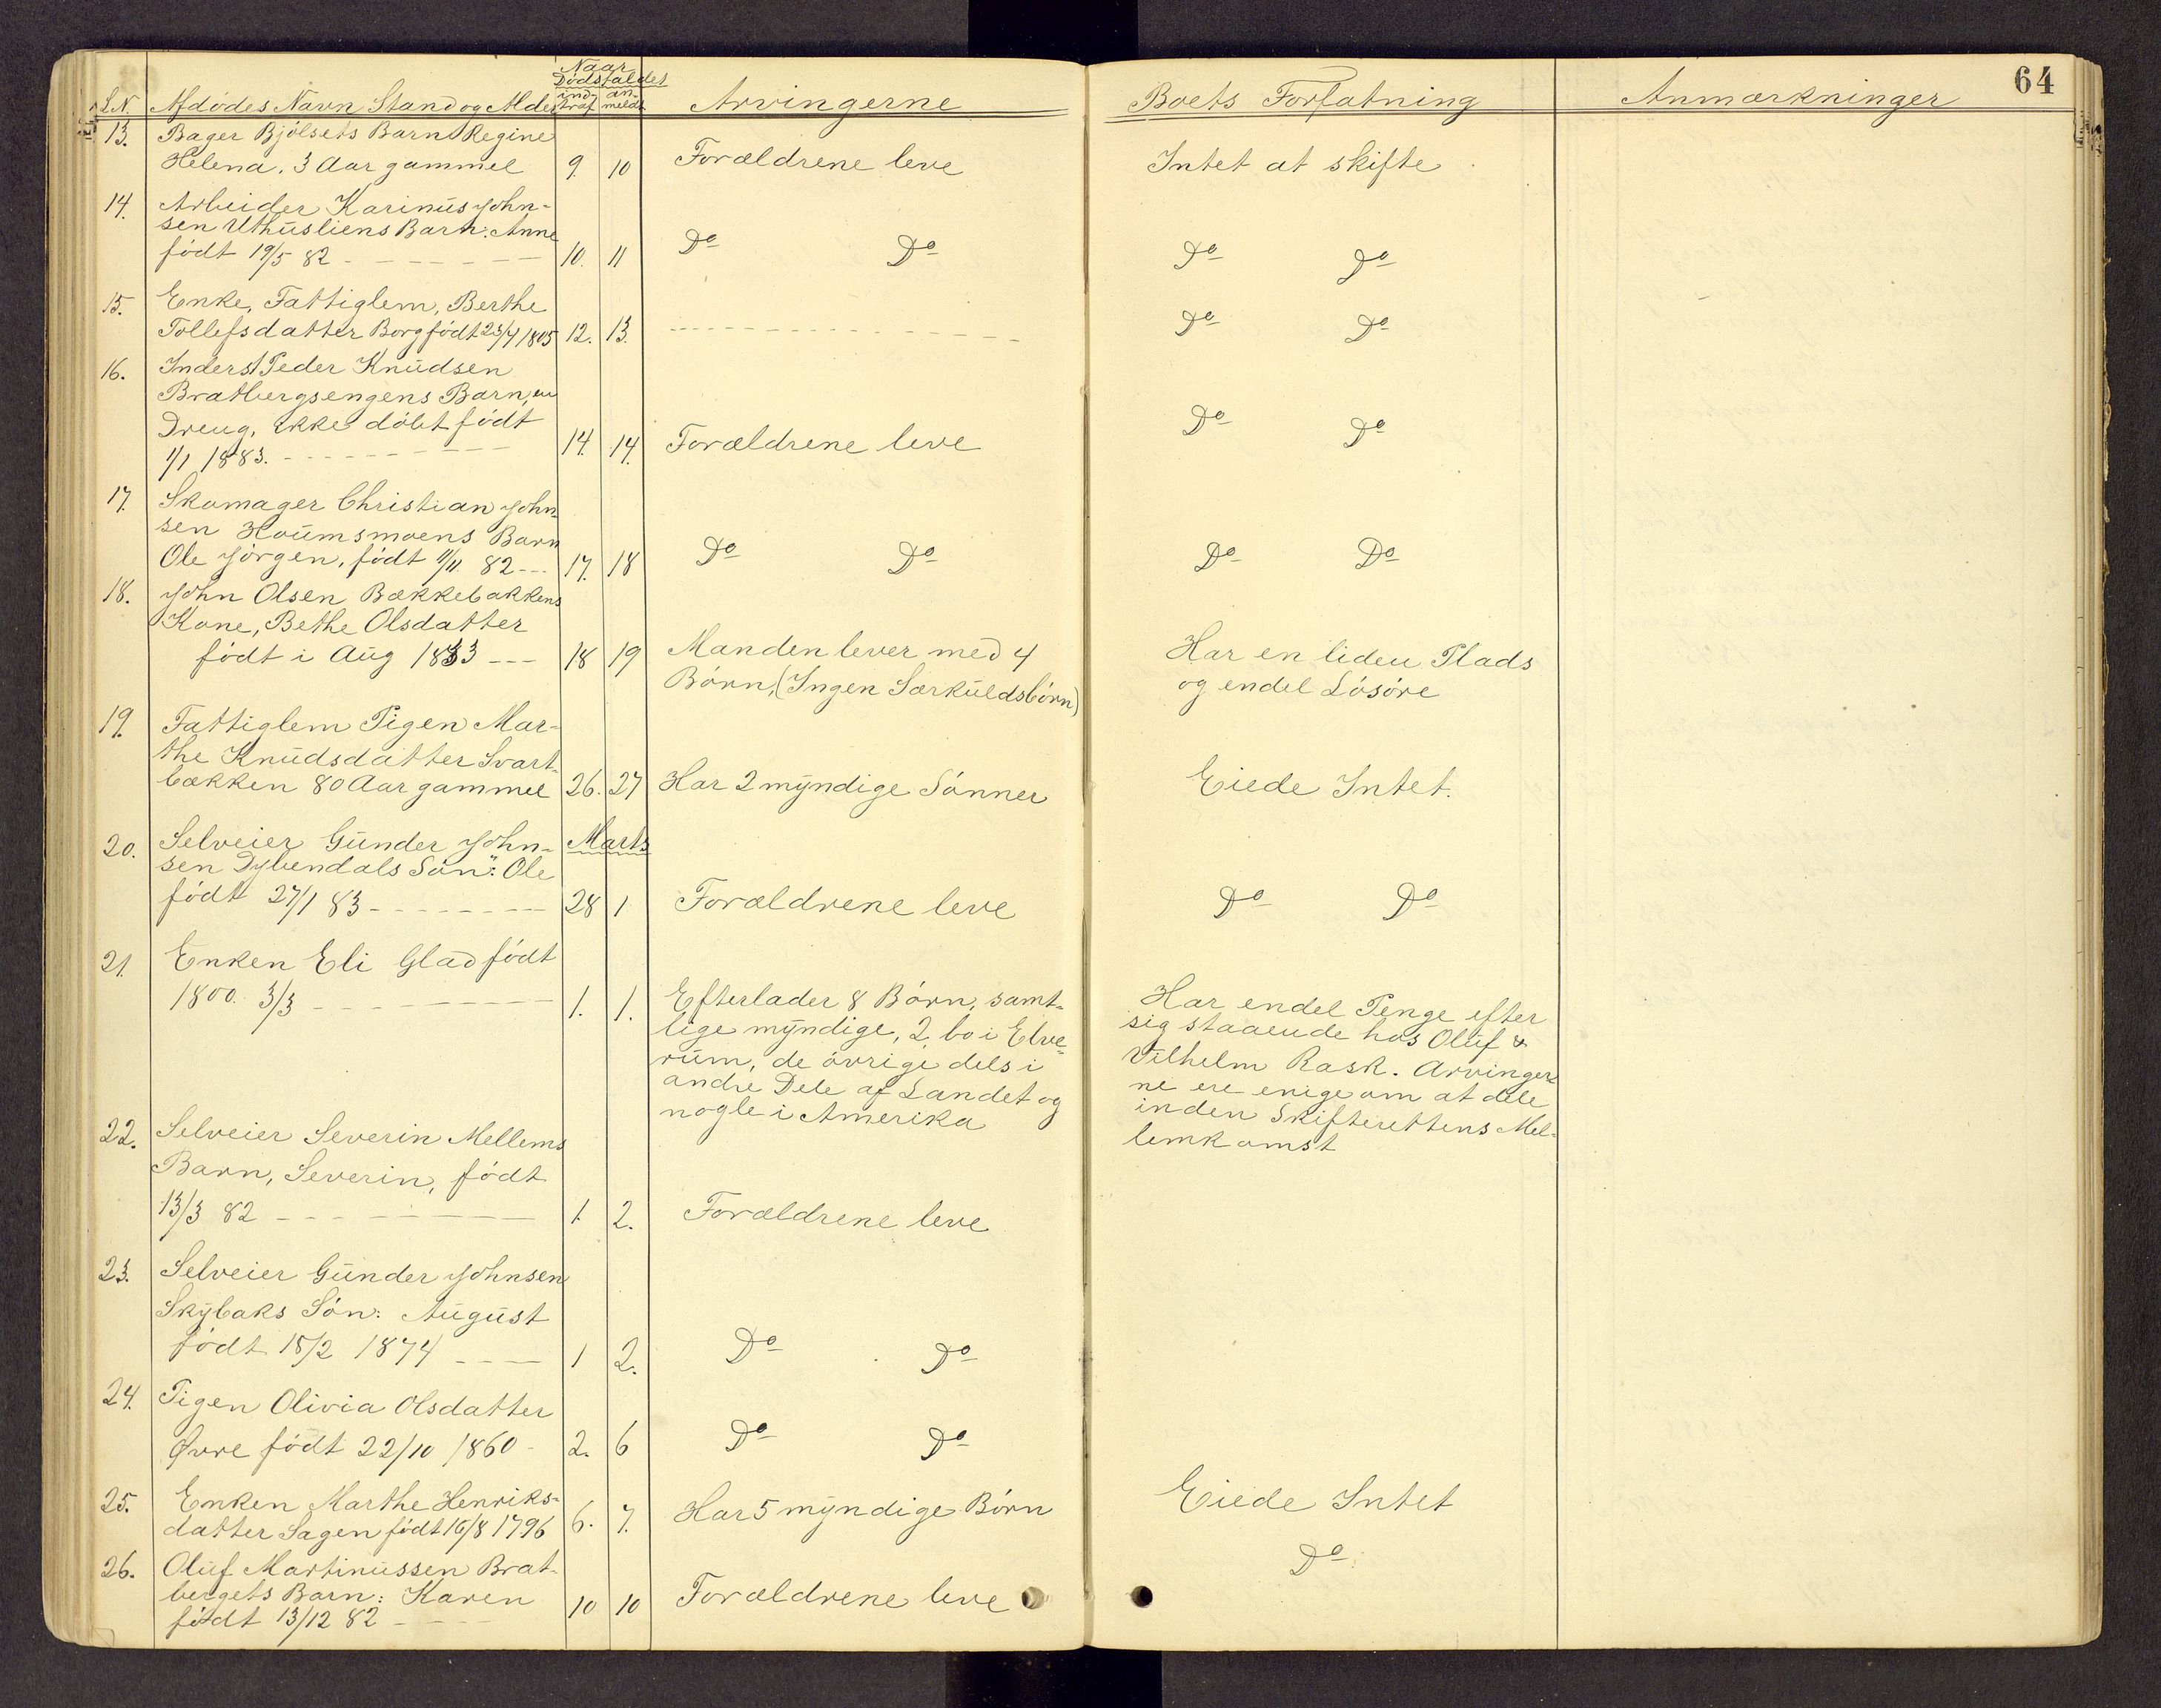 64
L.N. Afdødes Navn Stand og Alder Naar Dødsfaldet ind-traf an-meldt Arvingerne Boets Forfatning Anmærkninger
13. Bager Bjölsets Barn Regine
Helena. 3 Aar gammel 9. 10 Forældrene leve Intet at skifte
14. Arbeider Karinus John-
sen Uthusliens Barn: Anne
født 19/5 82 - - - 10. 11 Do Do Do Do
15. Enke, Fattiglem, Berthe
Tollefsdatter Borg født 23/4 1805 12. 13. - - - Do Do
16. Inderst Peder Knudsen
Bratbergsengens Barn, en
Dreng, ikke döbt født
1/1 1883. - - - 14. 14. Forældrene leve Do Do
17. Skomager Christian John-
sen Houmsmoens Barn
Ole Jörgen, født 11/11 82 - - - 17. 18 Do Do Do Do
18. John Olsen Bækkebakkens
Kone, Bethe Olsdatter
født i Aug 1833 - - - 18 19 Manden lever med 4 Har en liden Plads
Börn, (Ingen Særkuldsbörn) og endel Lösöre
19. Fattiglem Pigen Mar-
the Knudsdatter Svart-
bækken 80 Aar gammel 26. 27 Har 2 myndige Sönner Eiede Intet.
20. Selveier Gunder John- Marts
sen Dybendals Sön: Ole
født 27/1 83 - - - 28 1 Forældrene leve Do Do
21. Enken Eli Glad født
1800. 3/3 - - - 1. 1. Efterlader 8 Börn, samt-
lige myndige, 2 bo i Elve-
rum, de övrige dels i
andre Dele af Landet og
nogle i Amerika
Har endel Penge efter
sig staaende hos Oluf &
Vilhelm Rask. Arvinger-
ne ere enige om at dele
inden Skifterettens Mel-
lemkomst
22. Selveier Severin Mellems
Barn, Severin, født
13/3 82 - - - 1. 2. Forældrene leve
23. Selveier Gunder Johnsen
Skybaks Sön: August
født 15/2 1874 - - - 1 2. Do Do
24. Pigen Olivia Olsdatter
Øvre født 22/10 1860 - 2. 6 Do Do
25. Enken Marthe Henriks-
datter Sagen født 16/8 1796 6. 7. Har 5 myndige Börn Eiede Intet
26. Oluf Martinussen Brat-
bergets Barn: Karen Do
født 13/12 82 - - - 10 10 Forældrene leve